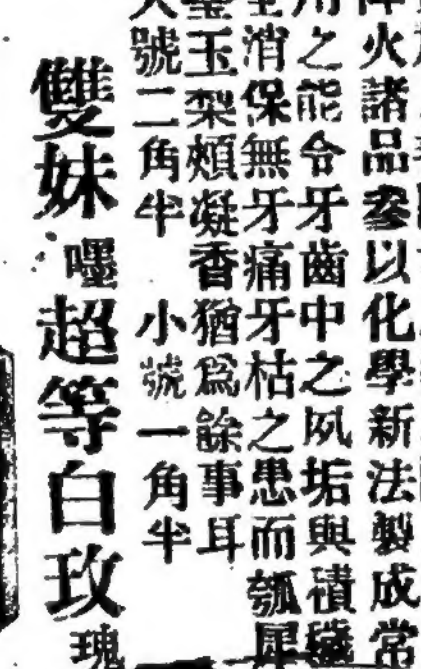 降火諸品參以化學新法製成常
用之能令牙齒中之夙垢與積穢
全消保無牙痛牙枯之患而瓠犀
瑩玉梨頰凝香猶爲餘事耳
大號二角半 小號一角半
雙妹嚜超等白玫瑰